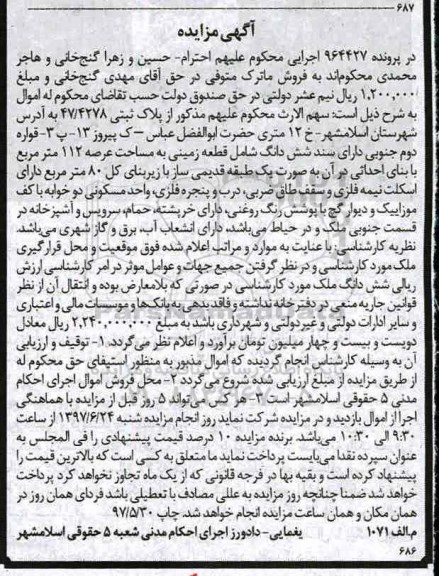 ۶۸۷
آگهی مزایده
در پرونده ۹۶۴۴۲۷ اجرایی محکوم علیهم احترام- حسین و زهرا گنج‌خانی و هاجر
محمدی محکوم‌اند به فروش ماترک متوفی در حق آقای مهدی گنج‌خانی و مبلغ
۱,۲۰۰,۰۰۰ ریال نیم عشر دولتی در حق صندوق دولت حسب تقاضای محکوم له اموال
به شرح ذیل است: سهم الارث محکوم علیهم مذکور از پلاک ثبتی ۴۷/۴۲۷۸ به آدرس
شهرستان اسلامشهر- خ ۱۲ متری حضرت ابوالفضل عباس – ک پیروز ۱۳- پ ۳- قواره
دوم جنوبی دارای سند شش دانگ شامل قطعه زمینی به مساحت عرصه ۱۱۲ متر مربع
با بنای احداثی در آن به صورت یک طبقه قدیمی ساز با زیربنای کل ۸۰ متر مربع دارای
اسکلت نیمه فلزی و سقف طاق ضربی، درب و پنجره فلزی، واحد مسکونی دو خوابه با کف
موزاییک و دیوار گچ با پوشش رنگ روغنی، دارای خرپشته، حمام، سرویس و آشپزخانه در
قسمت جنوبی ملک و در حیاط می‌باشد، دارای انشعاب آب، برق و گاز شهری می‌باشد.
نظریه کارشناسی: با عنایت به موارد و مراتب اعلام شده فوق موقعیت و محل قرارگیری
ملک مورد کارشناسی و در نظر گرفتن جمیع جهات و عوامل موثر در امر کارشناسی ارزش
ریالی شش دانگ ملک مورد کارشناسی در صورتی که بلامعارض بوده و انتقال آن از نظر
قوانین جاریه منعی در دفترخانه نداشته و فاقد بدهی به بانک‌ها و موسسات مالی و اعتباری
و سایر ادارات دولتی و غیردولتی و شهرداری باشد به مبلغ ۲,۲۴۰,۰۰۰,۰۰۰ ریال معادل
دویست و بیست و چهار میلیون تومان برآورد و اعلام نظر می‌گردد. ۱- توقیف و ارزیابی
آن به وسیله کارشناس انجام گردیده که اموال مذبور به منظور استیفای حق محکوم له
از طریق مزایده از مبلغ ارزیابی شده شروع می‌گردد ۲- محل فروش اموال اجرای احکام
مدنی ۵ حقوقی اسلامشهر است ۳- هر کس می‌تواند ۵ روز قبل از مزایده با هماهنگی
اجرا از اموال بازدید و در مزایده شرکت نماید روز انجام مزایده شنبه ۱۳۹۷/۶/۲۴ از ساعت
۹:۳۰ الی ۱۰:۳۰ می‌باشد. برنده مزایده ۱۰ درصد قیمت پیشنهادی را فی المجلس به
عنوان سپرده نقدا می‌بایست پرداخت نماید ما متعلق به کسی است که بالاترین قیمت را
پیشنهاد کرده است و بقیه بها در فرجه قانونی که از یک ماه تجاوز نخواهد کرد پرداخت
خواهد شد ضمنا چنانچه روز مزایده به عللی مصادف با تعطیلی باشد فردای همان روز در
همان مکان و همان ساعت مزایده انجام خواهد شد. چاپ ۹۷/۵/۳۰
م.الف ۱۰۷۱ یغمایی- دادورز اجرای احکام مدنی شعبه ۵ حقوقی اسلامشهر
۶۸۶